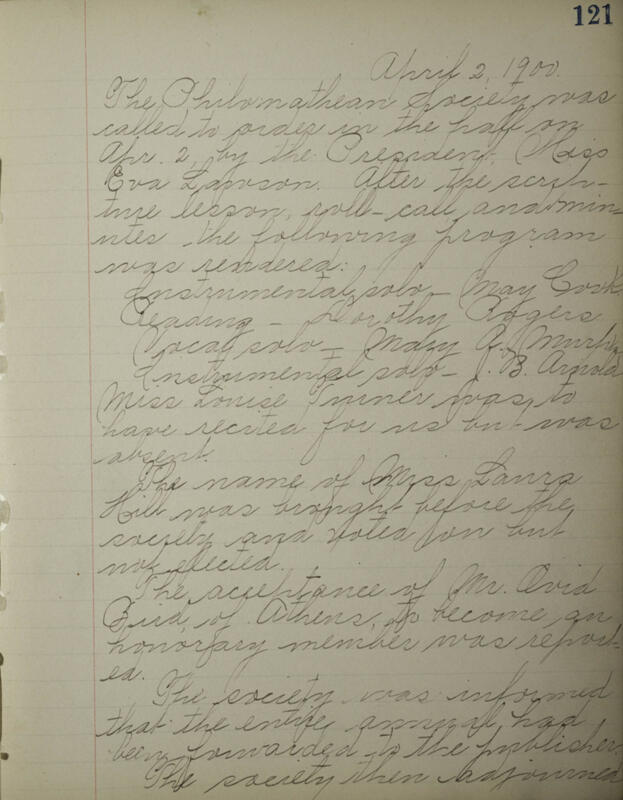 121
April 2, 1900.
The Philomathean Society was
called to order in the hall on
Apr. 2, by the President, Miss
Eva Lawson. After the scrip-
ture lesson, roll-call and min-
utes the following program
was rendered:
Instrumental solo - May Cook
Reading - Dorothy Rogers
Vocal solo - Mary J. Murphy
Instrumental solo - J. B. Arnold
Miss Louise Turner was to
have recited for us but was
absent.
The name of Miss Laura
Hill was brought before the
society and voted on but
not elected.
The acceptance of Mr. Ovid
of Athens, to become an
honorary member was report-
ed.
The society was informed
that the entire annual had
been forwarded to the publisher.
The society then adjourned